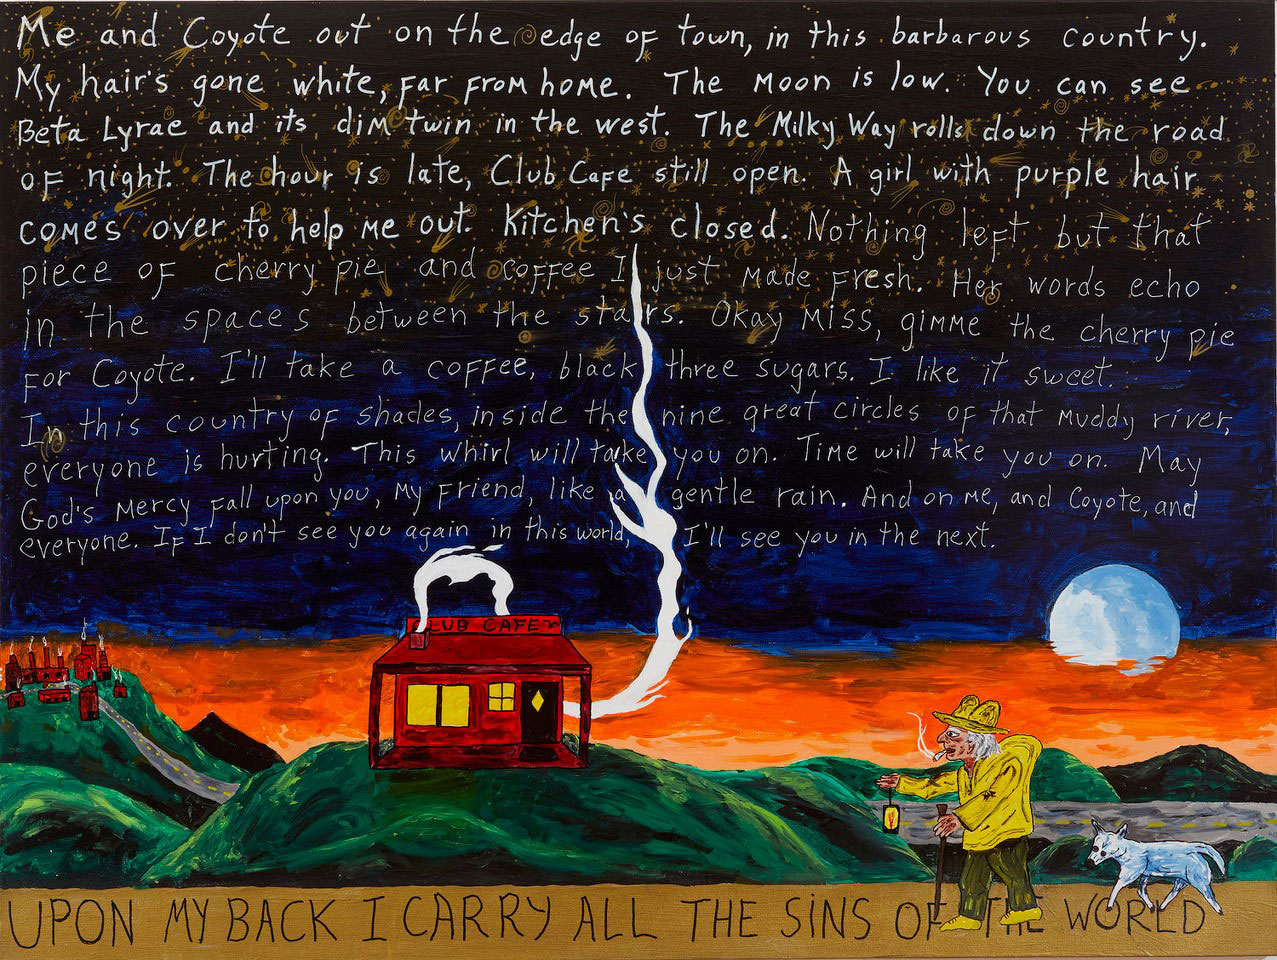 Me and Coyote out on the edge of town, in this barbarous country.
My hair's gone white, far from home. The moon is low. You can see
Beta Lyrae and its dim twin in the west. The Milky Way rolls down the road
of night. The hour is late, Club Cafe still open. A girl with purple hair
comes over to help me out. Kitchen's closed. Nothing left but that
piece of cherry pie and coffee I just made fresh. Her words echo
in the spaces between the stars. Okay Miss, gimme the cherry pie
for Coyote. I'll take a coffee, black three sugars. I like it sweet.
In this country of shades, inside the nine great circles of that muddy river,
everyone is hurting. This whirl will take you on. Time will take you on. May
God's mercy fall upon you, my friend, like a gentle rain. And on me, and Coyote, and
everyone. If I don't see you again in this world, I'll see you in the next.
CLUB CAFE
UPON MY BACK I CARRY ALL THE SiNS OF THE WORLD